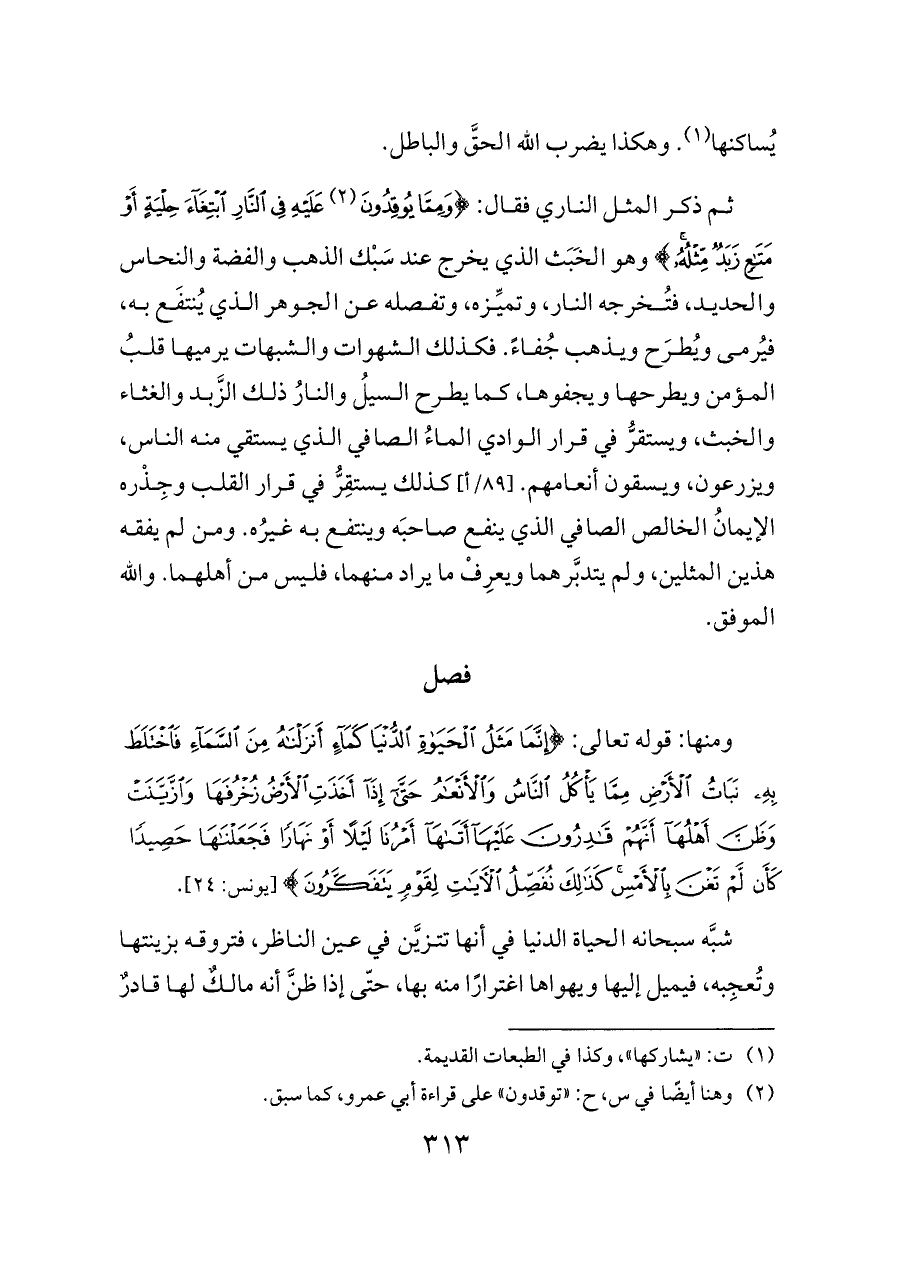 يُساكنها(١). وهكذا يضرب الله الحقَّ والباطل.
ثم ذكر المثل الناري فقال: ﴿وَمِمَّا يُوقِدُونَ(٢) عَلَيْهِ فِي ٱلنَّارِ ٱبْتِغَآءَ حِلْيَةٍ أَوْ
مَتَٰعٖ زَبَدٞ مِّثْلُهُۥۚ﴾ وهو الخَبَث الذي يخرج عند سَبْك الذهب والفضة والنحاس
والحديد، فتُخرجه النار، وتميِّزه، وتفصله عن الجوهر الذي يُنتفَع به،
فيُرمى ويُطرَح ويذهب جُفاءً. فكذلك الشهوات والشبهات يرميها قلبُ
المؤمن ويطرحها ويجفوها، كما يطرح السيلُ والنارُ ذلك الزَّبد والغثاء
والخبث، ويستقرُّ في قرار الوادي الماءُ الصافي الذي يستقي منه الناس،
ويزرعون، ويسقون أنعامهم. [٨٩/أ] كذلك يستقِرُّ في قرار القلب وجِذْره
الإيمانُ الخالص الصافي الذي ينفع صاحبَه وينتفع به غيرُه. ومن لم يفقه
هذين المثلين، ولم يتدبَّرهما ويعرِفْ ما يراد منهما، فليس من أهلهما. والله
الموفق.
فصل
ومنها: قوله تعالى: ﴿إِنَّمَا مَثَلُ ٱلْحَيَوٰةِ ٱلدُّنْيَا كَمَآءٍ أَنزَلْنَٰهُ مِنَ ٱلسَّمَآءِ فَٱخْتَلَطَ
بِهِۦ نَبَاتُ ٱلْأَرْضِ مِمَّا يَأْكُلُ ٱلنَّاسُ وَٱلْأَنْعَٰمُ حَتَّىٰٓ إِذَآ أَخَذَتِ ٱلْأَرْضُ زُخْرُفَهَا وَٱزَّيَّنَتْ
وَظَنَّ أَهْلُهَآ أَنَّهُمْ قَٰدِرُونَ عَلَيْهَآ أَتَىٰهَآ أَمْرُنَا لَيْلًا أَوْ نَهَارًا فَجَعَلْنَٰهَا حَصِيدًا
كَأَن لَّمْ تَغْنَ بِٱلْأَمْسِۚ كَذَٰلِكَ نُفَصِّلُ ٱلْءَايَٰتِ لِقَوْمٍ يَتَفَكَّرُونَ﴾ [يونس: ٢٤].
شبَّه سبحانه الحياة الدنيا في أنها تتزيَّن في عين الناظر، فتروقه بزينتها
وتُعجِبه، فيميل إليها ويهواها اغترارًا منه بها، حتّى إذا ظنَّ أنه مالكٌ لها قادرٌ
(١) ت: «يشاركها»، وكذا في الطبعات القديمة.
(٢) وهنا أيضًا في س، ح: «توقدون» على قراءة أبي عمرو، كما سبق.
٣١٣